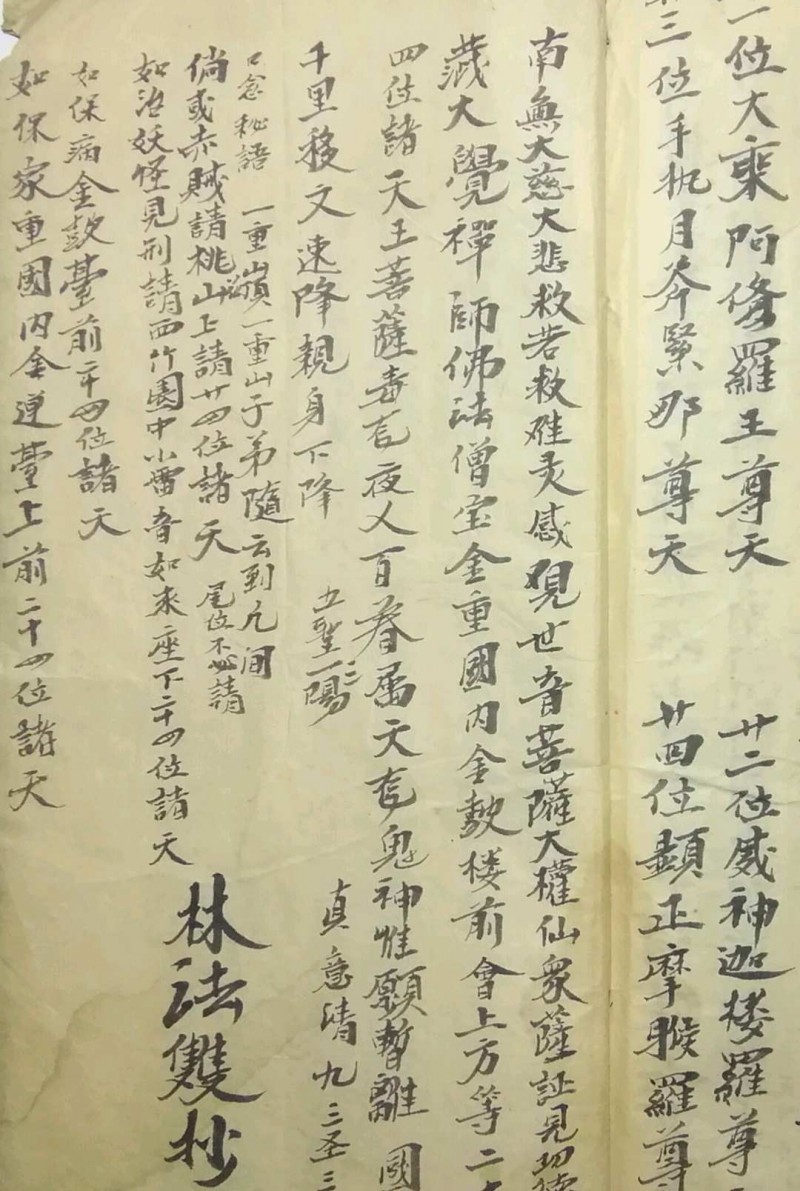 一位大乘阿修羅王尊天 廿二位威神迦楼羅尊
三位手执月斧緊那尊天 廿四位顯正摩睺羅尊
南無大慈大悲救苦救难灵感覌世音菩薩大權仙衆薩証見功德
藏大覺禪師佛法僧宝金重國内金鼓楼前會上方等二
四位諸天王菩薩毒龙夜乂百眷属天龙鬼神惟願暫離國
千里移文速降親身下降 五聖三陽 真意清九三圣三
口念秘語 一重嶺一重山子弟隨云到凡间
倘或赤賊請桃山上請廿四位諸天 尾位不必請
如治妖怪見刑請西竹園中小雷音如来座下二十四位諸天
如保病金鼓臺前二十四位諸天
如保家重國内金連臺上前二十四位諸天
林法雙抄